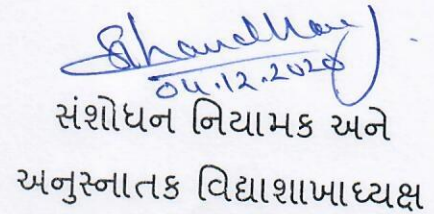 04.12.2020
સંશોધન નિયામક અને
અનુસ્નાતક વિદ્યાશાખાધ્યક્ષ